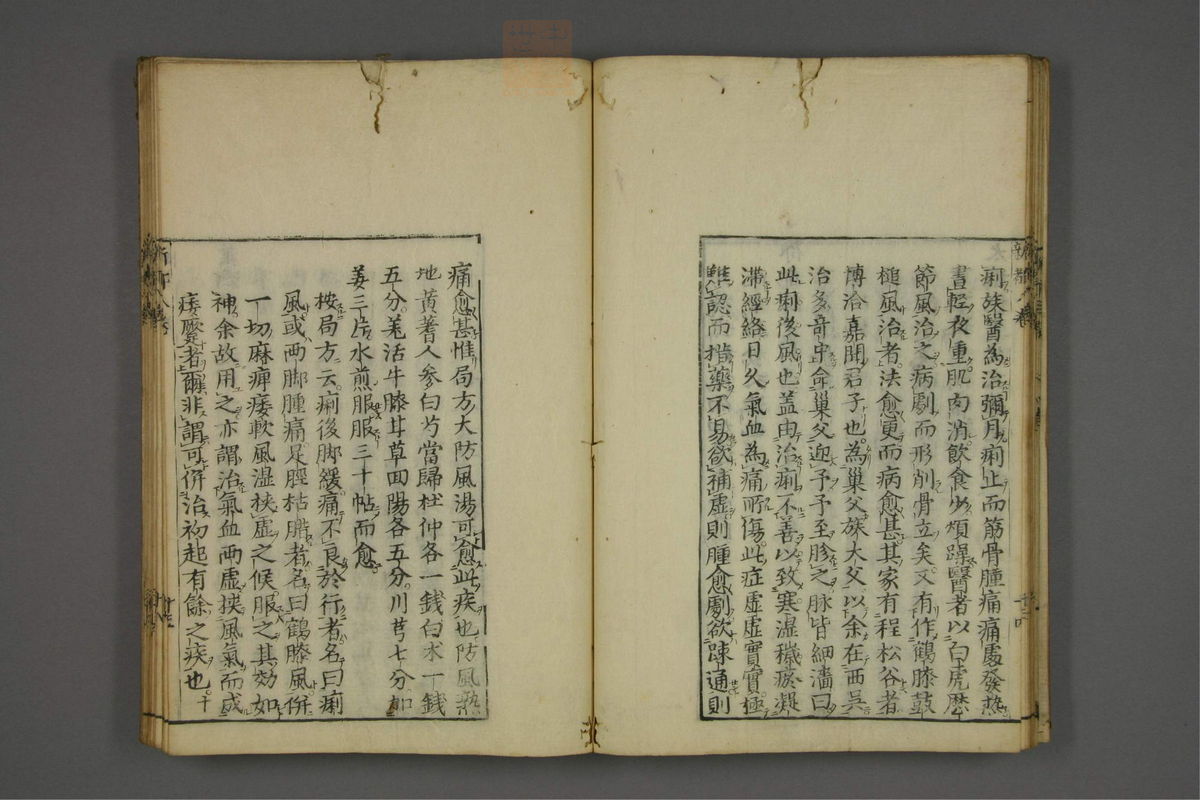 痢族醫為治彌月痢止而筋骨腫痛痛處發熱
晝輕夜重肌肉消飲食少煩躁醫者以白虎歷
節風治之病劇而形削骨立矣又有作鶴膝鼓
槌風治者法愈更而病愈甚其家有程松谷者
博洽嘉聞君子也為巢父族大父以余在西吳
治多奇中命巢父迎予予至胗之脉皆細濇曰
此痢後風也蓋由治痢不善以致寒濕穢瘀凝
滯經絡日久氣血為痛所傷此症虛虛實實極
難認而措藥不易欲補虛則腫愈劇欲踈通則
痛愈甚惟局方大防風湯可愈此疾也防風熟
地黃蓍人參白芍當歸杜仲各一錢白朮一錢
五分羌活牛膝甘草田陽各五分川芎七分加
姜三片水煎服服三十帖而愈
按局方云痢後脚緩痛不良於行者名曰痢
風或兩脚腫痛足脛枯腊者名曰鶴膝風併
一切麻痺痿軟風濕挾虛之候服之其効如
神余故用之亦謂治氣血兩虛挾風氣而成
痿躄者爾非謂可併治初起有餘之疾也